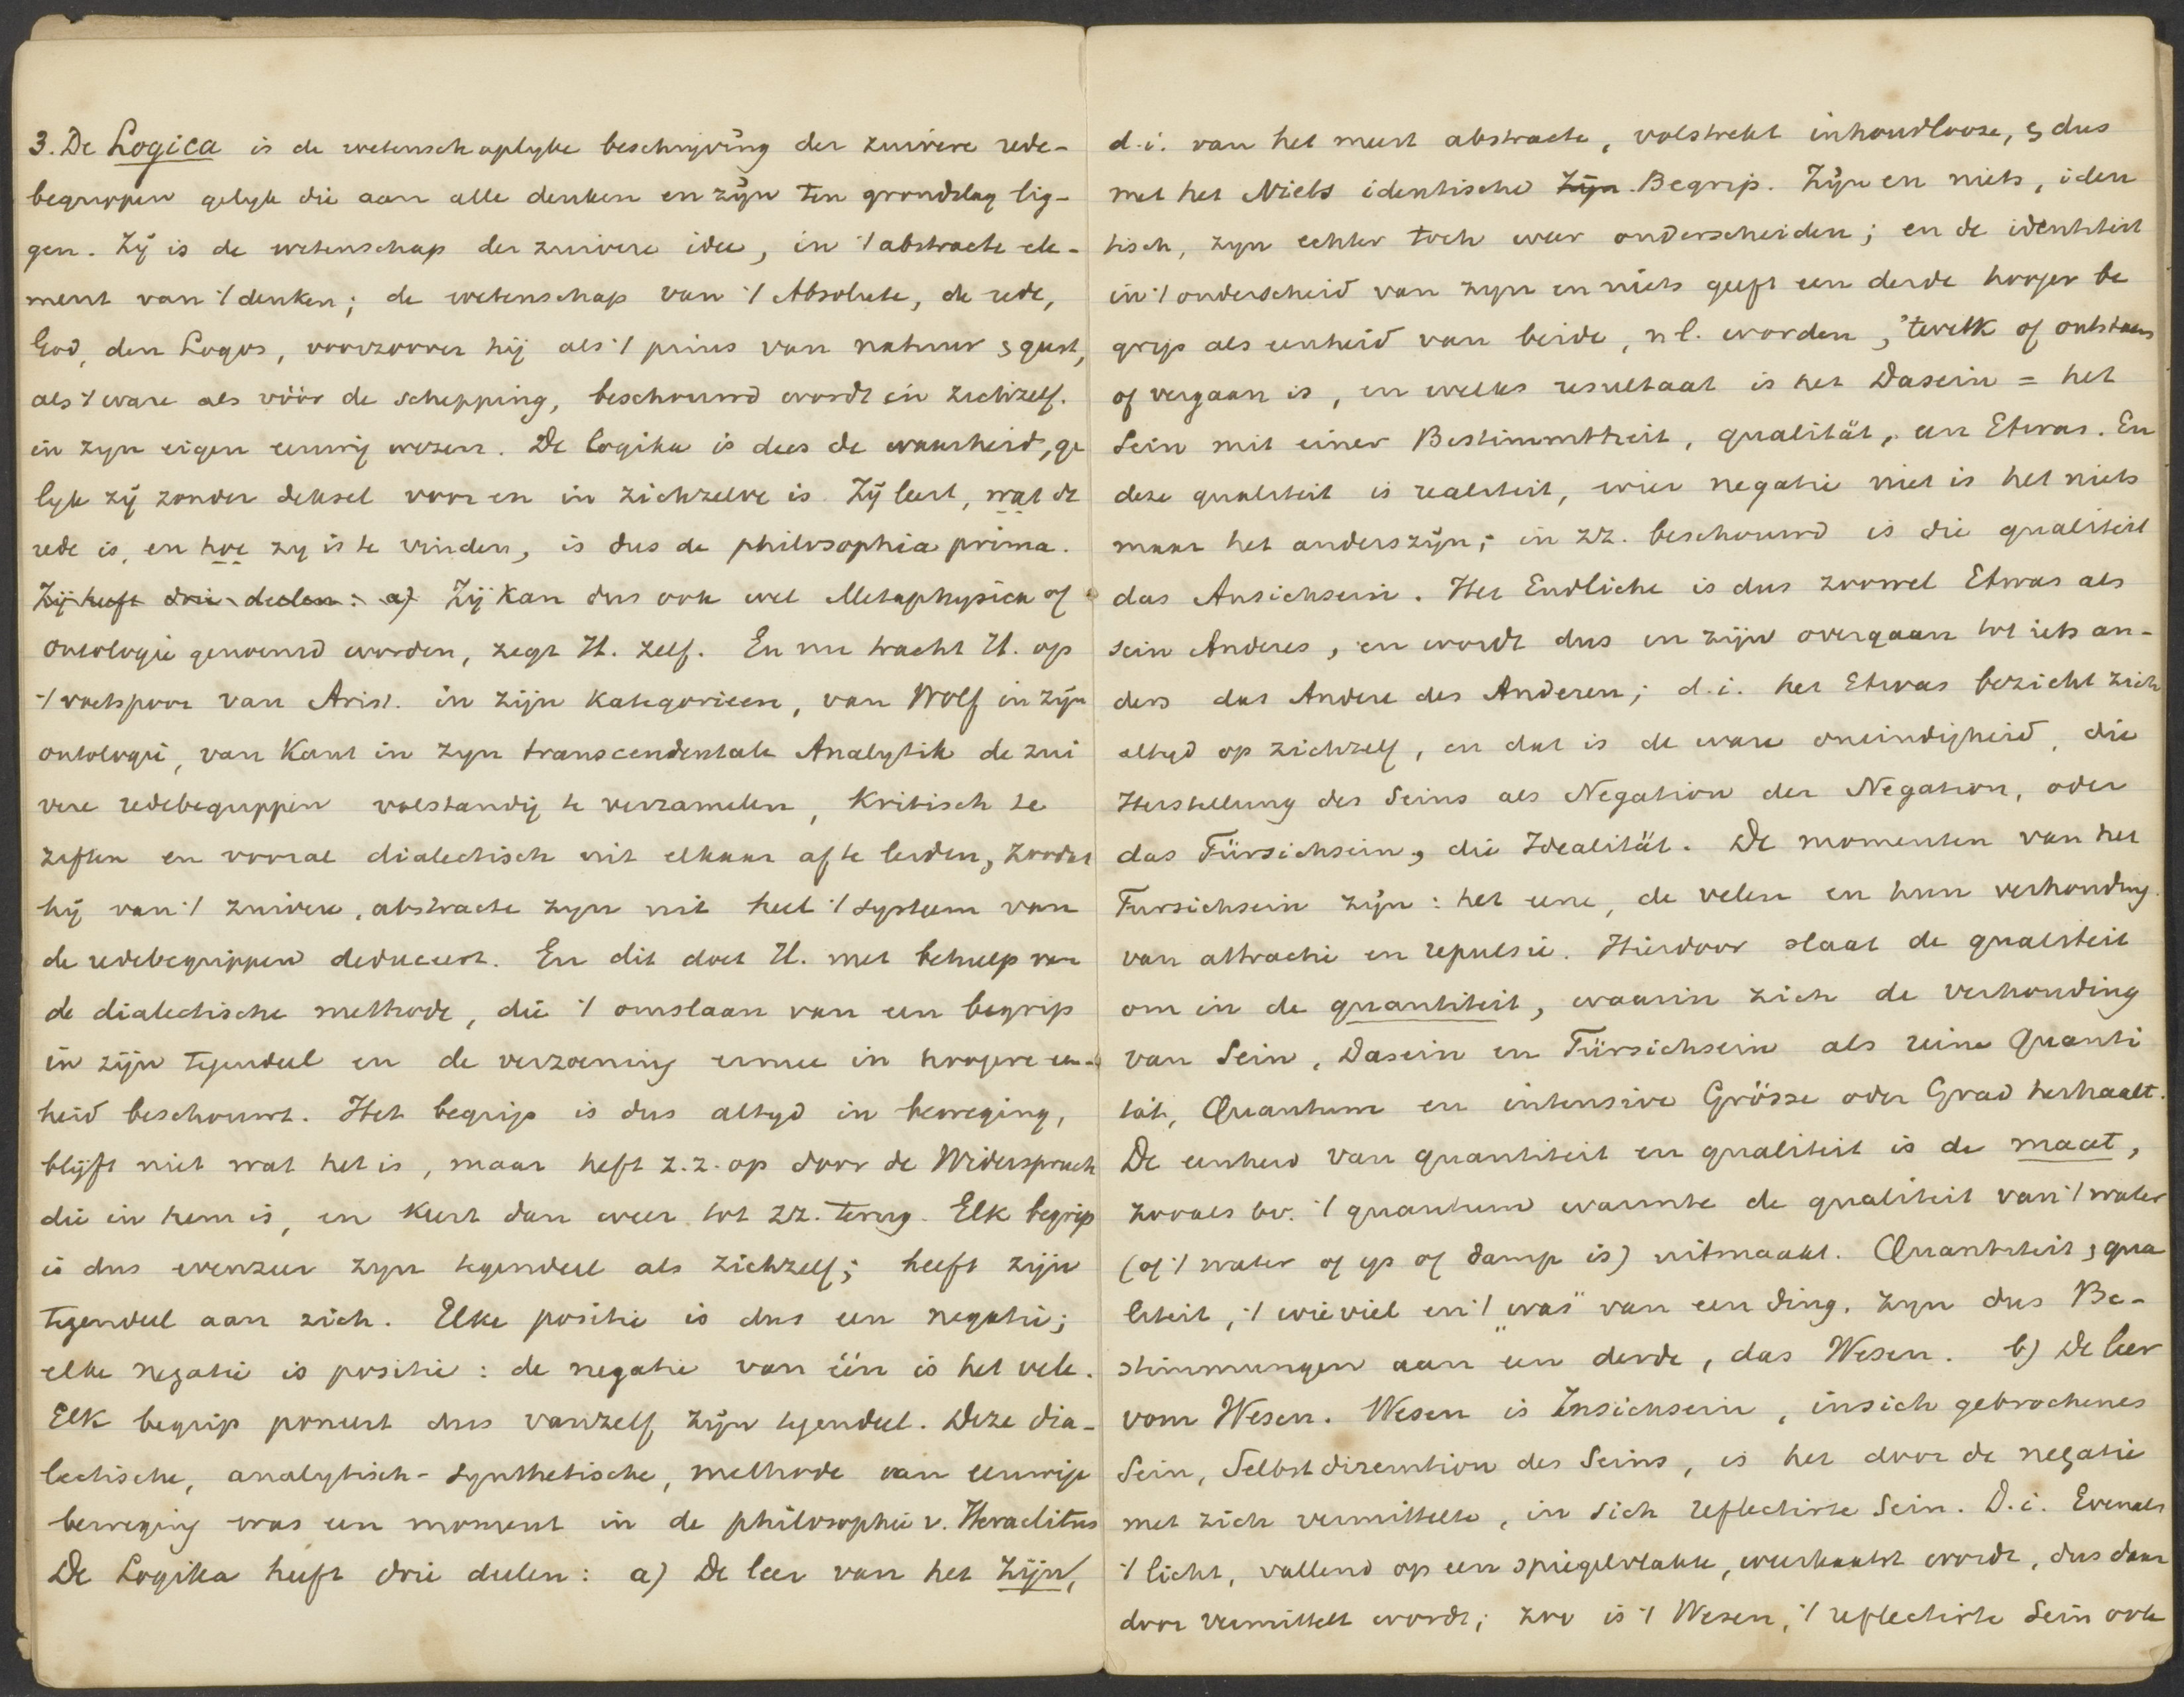 3. De Logica is de wetenschaplyke beschrijving der zuivere rede-
begrippen gelyk die aan alle denken en zijn ten grondslag lig-
gen. Zij is de wetenschap der zuivere idee, in 't abstracte ele-
ment van 't denken; de wetenschap van 't Absolute, de rede,
God, den Logos, voorzoover hij als 't prius van natuur & geest,
als 't ware als vóór de schepping, beschouwd wordt in zichzelf.
in zyn eigen eeuwig wezen. De logika is dus de waarheid, ge
lyk zij zonder deksel voor en in zichzelve is. Zij leert, wat de
rede is, en hoe zy is te vinden, is dus de philosophia prima.
Zij heeft drie deelen: a) Zij kan dus ook wel Metaphysica of
Ontologie genoemd worden, zegt H. zelf. En nu tracht H. op
't voetspoor van Arist. in zijn kategorieen, van Wolf in zijn
ontologie, van Kant in zyn transcendentale Analytik de zui
vere redebegrippen volstandig te verzamelen, kritisch te
ziften en vooral dialectisch uit elkaar af te leiden, zoodat
hij van 't zuivere, abstracte zyn uit heel 't systeem van
de redebegrippen deduceert. En dit doet H. met behulp van
de dialectische methode, die 't omslaan van een begrip
in zijn tegendeel en de verzoening ermee in hoogere een-
heid beschouwt. Het begrip is dus altyd in beweging,
blijft niet wat het is, maar heft z.z. op door de Widerspruch
die in hem is, en keert dan weer tot zz. terug. Elk begrip
is dus evenzeer zyn tegendeel als zichzelf; heeft zijn
tegendeel aan zich. Elke positie is dus een negatie;
elke negatie is positie: de negatie van één is het vele.
Elk begrip poneert dus vanzelf zijn tegendeel. Deze dia-
lectische, analytisch-synthetische, methode van eeuwige
beweging was een moment in de philosophie v. Heraclitus
De Logika heeft drie deelen: a) De leer van het zijn,
d.i. van het meest abstracte, volstrekt inhoudlooze, & dus
met het Niets identische Zijn. Begrip. Zijn en niets, iden
tisch, zyn echter toch weer onderscheiden; en de identiteit
in 't onderscheid van zyn en niets geeft een derde hooger be
grip als eenheid van beide, nl. worden, 'twelk of ontstaan
of vergaan is, en welks resultaat is het Dasein = het
Sein mit einer Bestimmtheit, qualität, een Etwas. En
deze qualiteit is realiteit, wier negatie niet is het niets
maar het anderszijn; in zz. beschouwd is die qualiteit
das Ansichsein. Het Endliche is dus zoowel Etwas als
sein Anderes, en wordt dus in zijn overgaan tot iets an-
ders das Andere des Anderen; d.i. het Etwas bezieht zich
altyd op zichzelf, en dat is de ware oneindigheid, die
Herstellung des Seins als Negation der Negation, oder
das Fürsichsein, die Idealität. De momenten van het
Fursichsein zijn: het eene, de velen en hun verhouding
van attractie en repulsie. Hierdoor slaat de qualiteit
om in de quantiteit, waarin zich de verhouding
van Sein, Dasein en Fürsichsein als reine Quanti
tät, Quantum en intensive Grösse oder Grad herhaalt.
De eenheid van quantiteit en qualiteit is de maat,
zooals bv. 't quantum warmte de qualiteit van 't water
(of 't water of ys of damp is) uitmaakt. Quantiteit & qua
liteit, 't wieviel en 't „was" van een ding, zyn dus Be-
stimmungen aan een derde, das Wesen. b) De leer
vom Wesen. Wesen is Insichsein, insich gebrochenes
Sein, Selbstdiremtion des Seins, is het door de negatie
met zich vermittelte, in sich reflectirte Sein. D.i. Evenals
't licht, vallend op een spiegelvlakte, weerkaatst wordt, dus daar
door vermittelt wordt; zoo is 't Wesen, 't reflectirte Sein ook